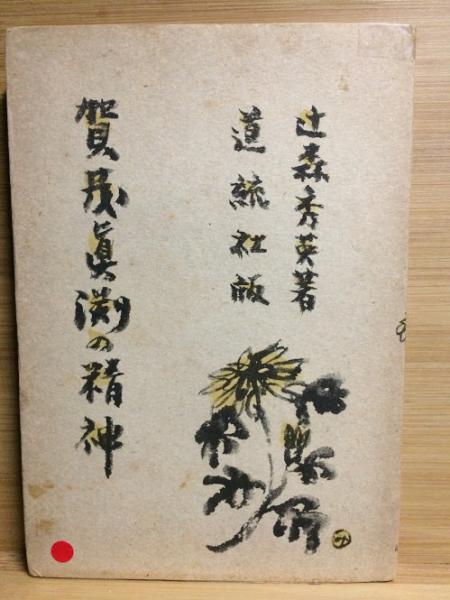 辻森秀英著
道統社版
賀茂眞渕の精神